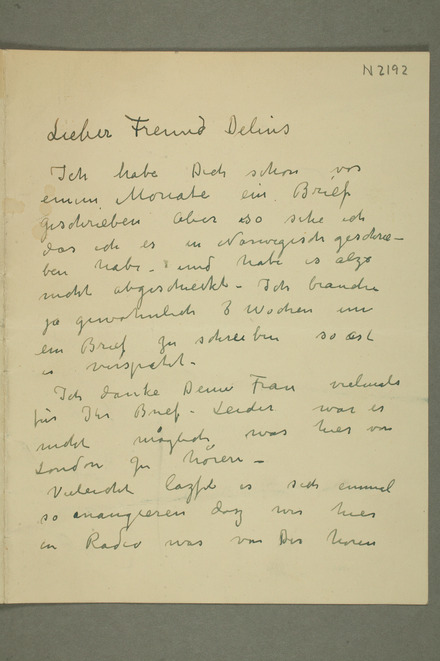 N 2192
Lieber Freund Delius
Ich habe Dich schon vor
einem Monate ein Brief
geschrieben aber so sehe ich
das ich es in Norwegisch geschrie-
ben habe - und habe es also
nicht abgeschickt - Ich brauche
ja gewohnlich 3 Wochen um
ein Brief zu schreiben so ist
es verspätet -
Ich danke Deine Frau vielmals
für Ihr Brief - Leider war es
nicht möglich was hier von
London zu hören -
Vieleicht es sich einmal
so arrangieren dasz wir hier
in Radio was von Dir horen